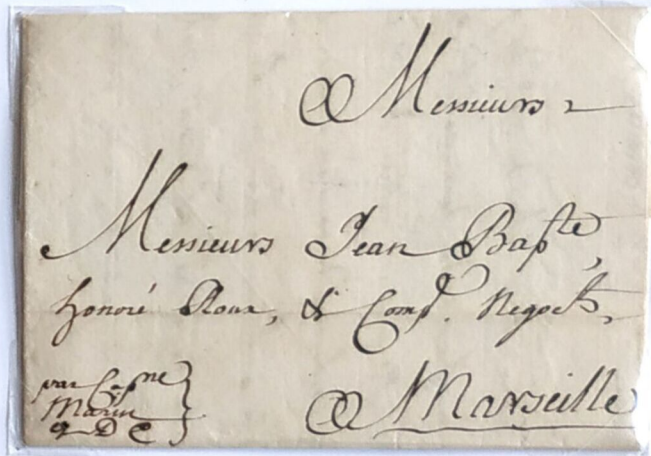 A Messieurs
Messieurs Jean Bapte,
honoré Roux, & Compe. Negocts,
par Capne
Marin
q D C
A Marseille